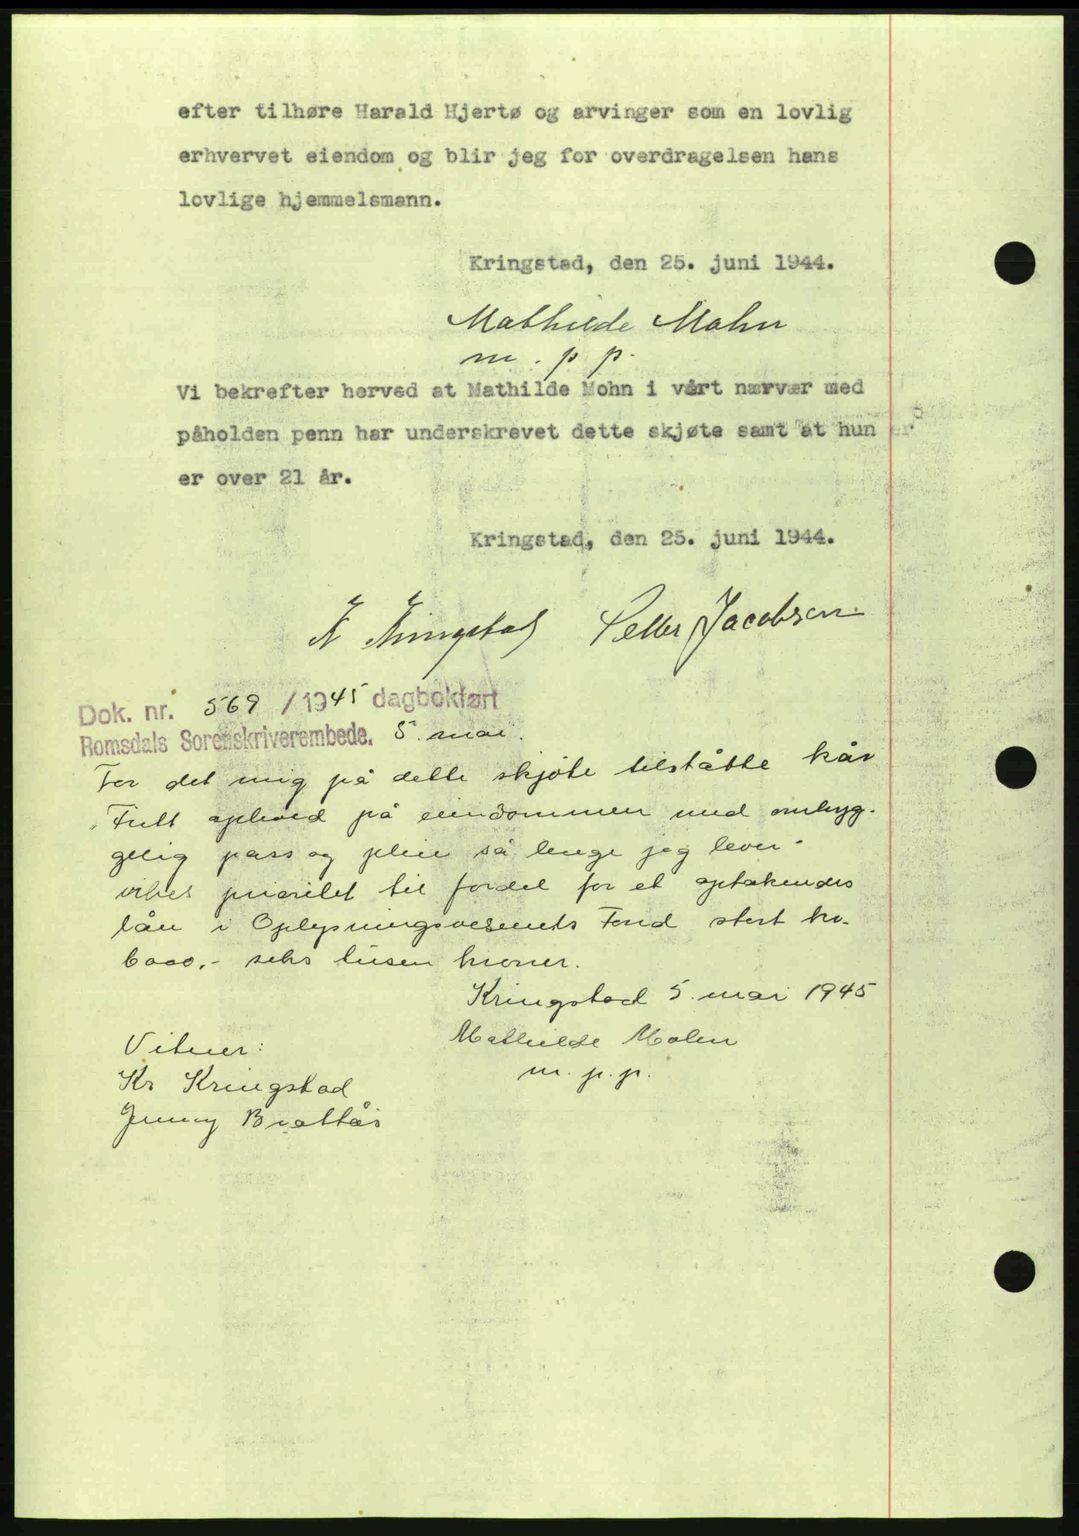 efter tilhøre Harald Hjertø og arvinger som en lovlig
erhvervet eiendom og blir jeg for overdragelsen hans
lovlige hjemmelsmann.
Kringstad, den 25. juni 1944.
Mathilde Mohn
m. p. p.
Vi bekrefter herved at Mathilde Mohn i vårt nærvær med
påholden penn har underskrevet dette skjøte samt at hun er
er over 21 år.
Kringstad, den 25. juni 1944.
K Kringstad Petter Jacobsen
Dok. nr. 569 / 1945 dagbokført
Romsdals Sorenskriverembede. 5. mai.
For det mig på dette skjöte tilståtte kår
"Fritt ophold på eiendommen med omhyg-
gelig pass og pleie så lenge jeg lever"
vikes prioritet til fordel for et optakendes
lån i Oplysningsvesenets Fond stort kr.
6000,- seks tusen kroner.
Kringstad 5. mai 1945
Mathilde Mohn
m. p. p.
Vitner:
Kr Kringstad
Jenny Brattås